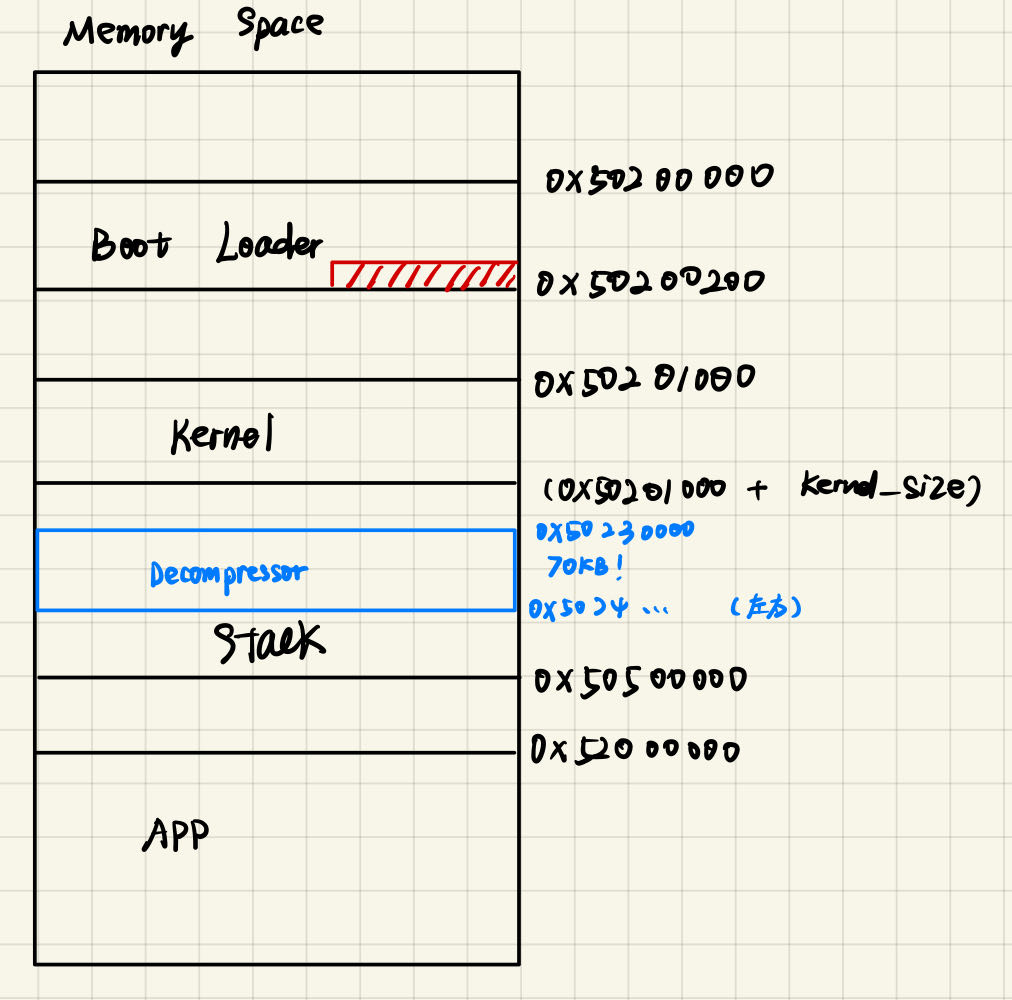 Memory Space
0x50200000
Boot Loader
0x50200200
0x50201000
Kernel
(0x50201000 + kernel_size)
0x50230000
70KB!
Decompressor
0x5024... (左右)
Stack
0x50500000
0x52000000
APP